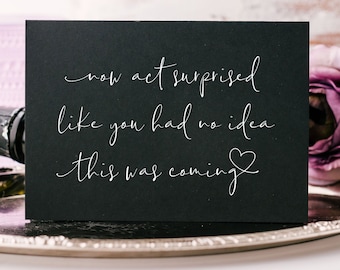 now act surprised
like you had no idea
this was coming